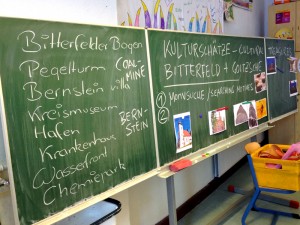 Bitterfelder Bogen
Pegelturm
COAL-
MINE
Bernsteinvilla
Kreismuseum
Hafen
BERN-
STEIN
Krankenhaus
Wasserfront
Chemiepark
KULTURSCHÄTZE - CULTURAL
TREASURES
BITTERFELD + GOITZSCHE
① MOTIVSUCHE / SEARCHING MOTIVES
②